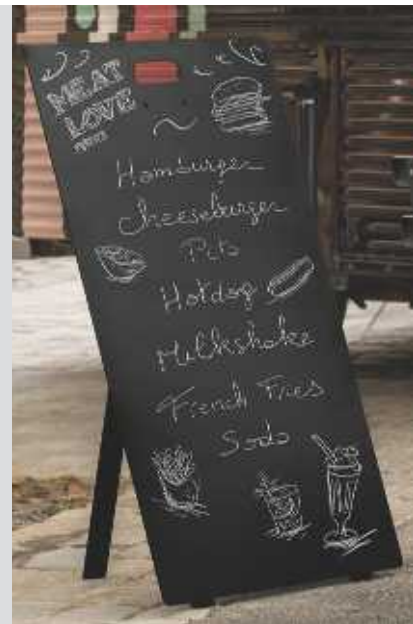 MEAT
LOVE
Hamburger
Cheeseburger
Pita
Hotdog
Milkshake
French Fries
Soda